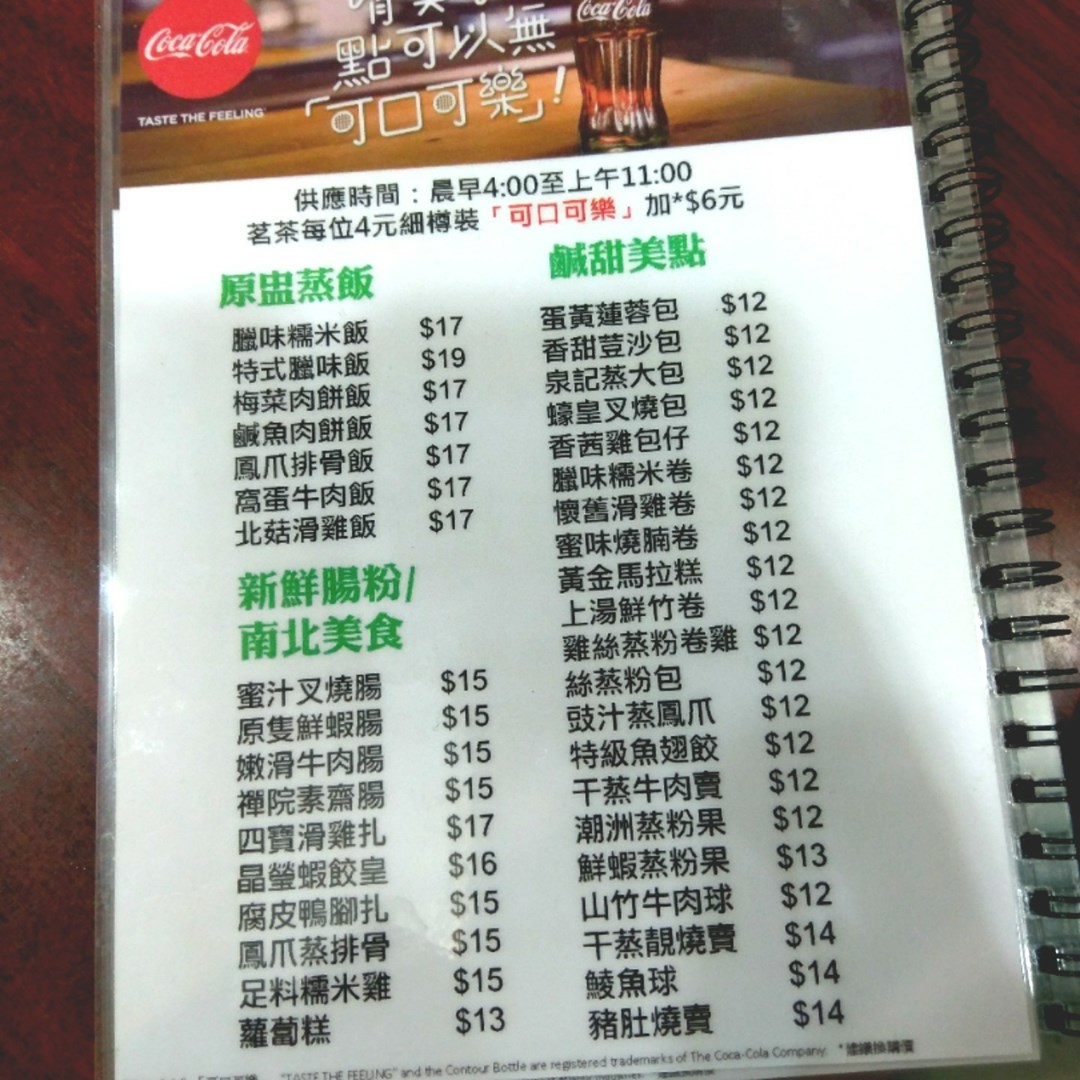 Coca-Cola
Coca-Cola
點可以無
「可口可樂」!
TASTE THE FEELING
供應時間：晨早4:00至上午11:00
茗茶每位4元細樽裝「可口可樂」加*$6元
原盅蒸飯
臘味糯米飯 $17
特式臘味飯 $19
梅菜肉餅飯 $17
鹹魚肉餅飯 $17
鳳爪排骨飯 $17
窩蛋牛肉飯 $17
北菇滑雞飯 $17
新鮮腸粉/
南北美食
蜜汁叉燒腸 $15
原隻鮮蝦腸 $15
嫩滑牛肉腸 $15
禪院素齋腸 $15
四寶滑雞扎 $17
晶瑩蝦餃皇 $16
腐皮鴨腳扎 $15
鳳爪蒸排骨 $15
足料糯米雞 $15
蘿蔔糕 $13
鹹甜美點
蛋黃蓮蓉包 $12
香甜荳沙包 $12
泉記蒸大包 $12
蠔皇叉燒包 $12
香茜雞包仔 $12
臘味糯米卷 $12
懷舊滑雞卷 $12
蜜味燒腩卷 $12
黃金馬拉糕 $12
上湯鮮竹卷 $12
雞絲蒸粉卷雞 $12
絲蒸粉包 $12
豉汁蒸鳳爪 $12
特級魚翅餃 $12
干蒸牛肉賣 $12
潮洲蒸粉果 $12
鮮蝦蒸粉果 $13
山竹牛肉球 $12
干蒸靚燒賣 $14
鯪魚球 $14
豬肚燒賣 $14
"TASTE THE FEELING" and the Contour Bottle are registered trademarks of The Coca-Cola Company. *建議換購價